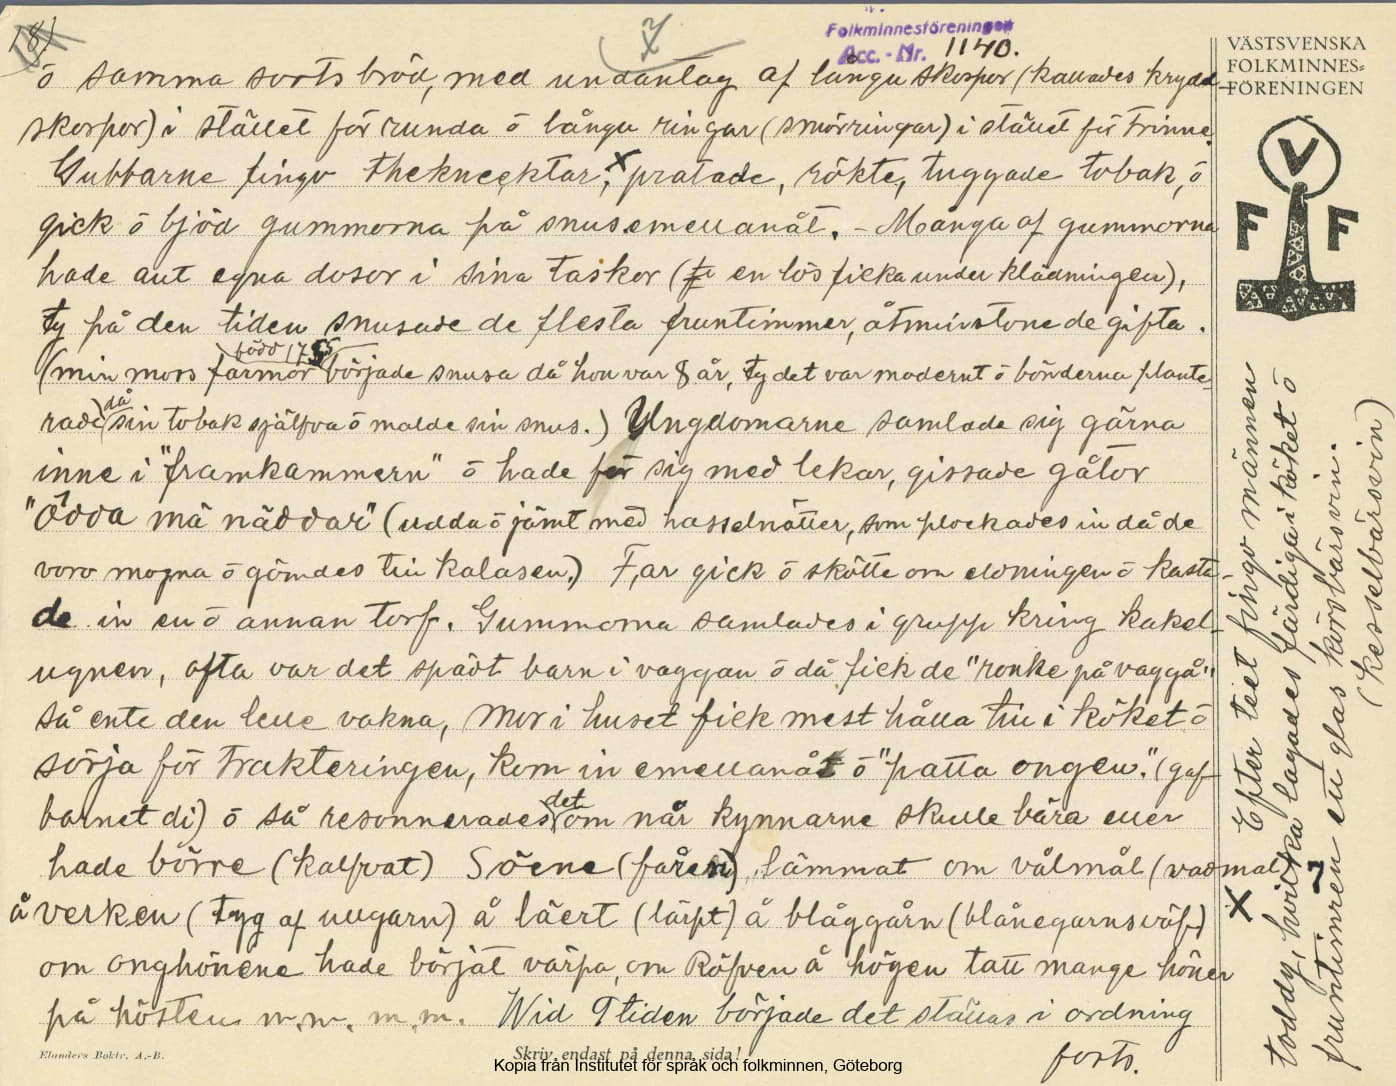 18)
7
Folkminnesföreningen
Acc. - Nr. 1140.
VÄSTSVENSKA
FOLKMINNES=
FÖRENINGEN
V
F F
ö samma sorts bröd, med undantag af långa skorpor (kallades krydd-
skorpor) i stället för runda ö långa ringar (smörringar) i stället för trinne.
Gubbarne fingo theknecktar, x pratade, rökte, tuggade tobak, ö
gick ö bjöd gummorna på snus emellanåt. - Många af gummorna
hade aut egna dosor i sina taskor (en lös ficka under klädningen),
ty på den tiden snusade de flesta fruntimmer, åtminstone de gifta.
(min mors farmor född 1755 började snusa då hon var 8 år, ty det var modernt ö bönderna plante-
rade) då sin tobak självfva ö malde sin snus.) Ungdomarne samlade sig gärna
inne i "framkammern" ö hade för sig med lekar, gissade gåtor
"Ödda mä näddar" (udda ö jämt med hasselnötter, som plockades in då de
voro mogna ö gömdes till kalasen.) Far gick ö skötte om eldningen ö kasta-
de in en ö annan torf. Gummorna samlades i grupp kring kakel-
ugnen, ofta var det spädt barn i vaggan ö då fick de "ronke på vaggå"
så ente den lelle vakna, Mor i huset fick mest hålla till i köket ö
sörja för trakteringen, kom in emellanåt ö "patta ongen". (gaf
barnet di) ö så resonnerades det om när kynnarne skulle bära eller
hade börre (kalfvat) Söene (fåren) lämmat om vålmål (vadmal
å verken (tyg af ullgarn) å läert (lärft) å blåggårn (blånegarnsväf)
om onghönene hade börjat värpa, om Räfven å högen tatt mange höner
på hösten m.m. m.m. Wid 9 tiden började det ställas i ordning
forts.
x Efter teet fingo männen
toddy, hvilka lagades färdiga i köket ö
fruntimren ett glas körsbärsvin.
(Kesselbärsvin)
7
Elanders Boktr. A.-B.
Skriv endast på denna sida!
Kopia från Institutet för språk och folkminnen, Göteborg